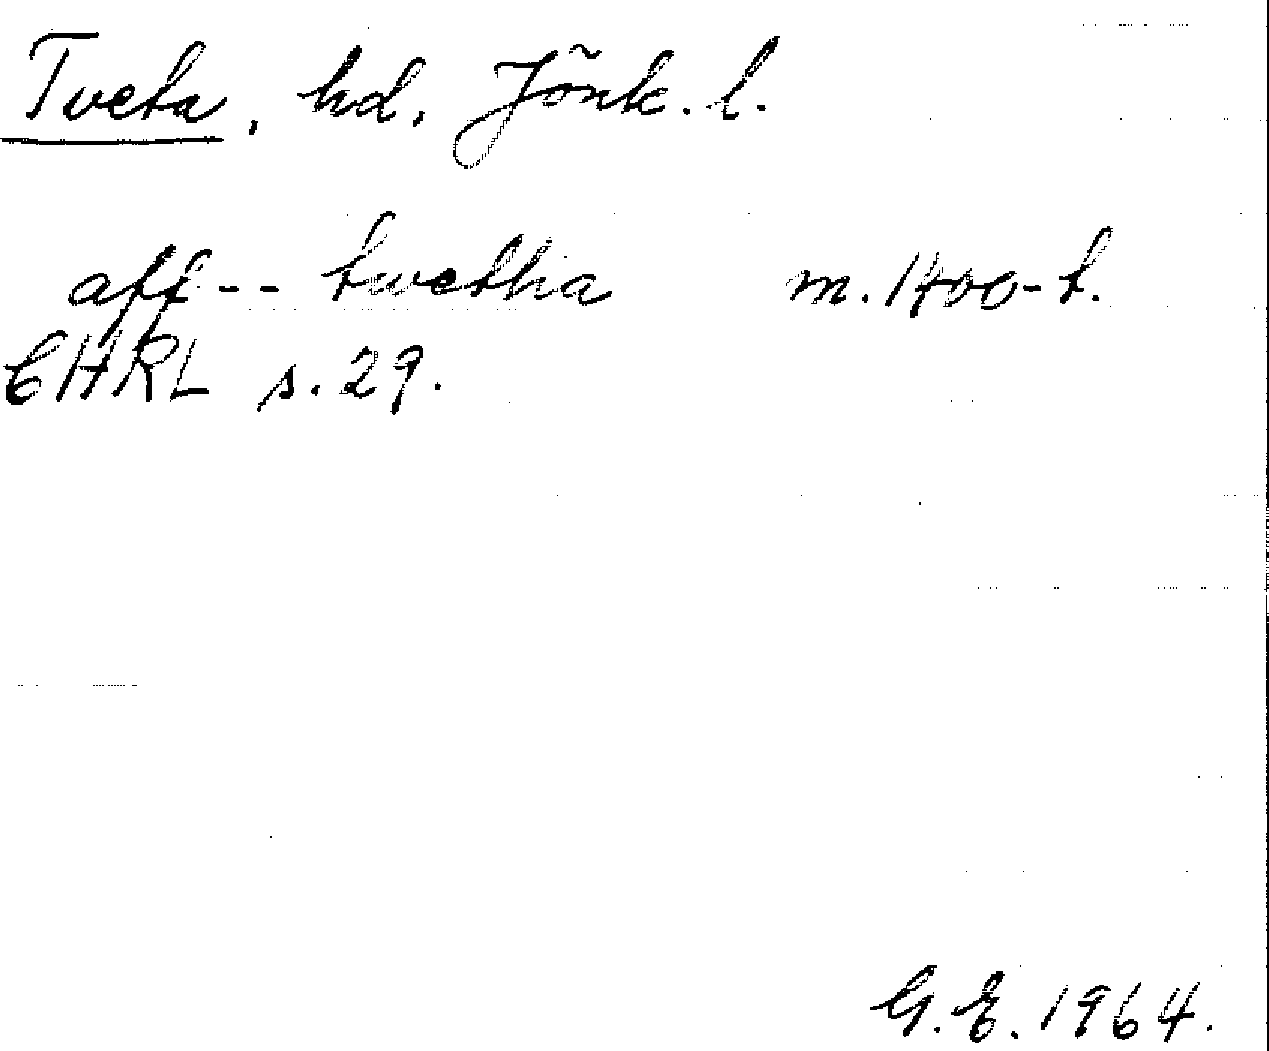 Tveta, hd, Jönk. l.
aff -- twetha m. 1400-t.
EHRL s. 29.
G.E. 1964.